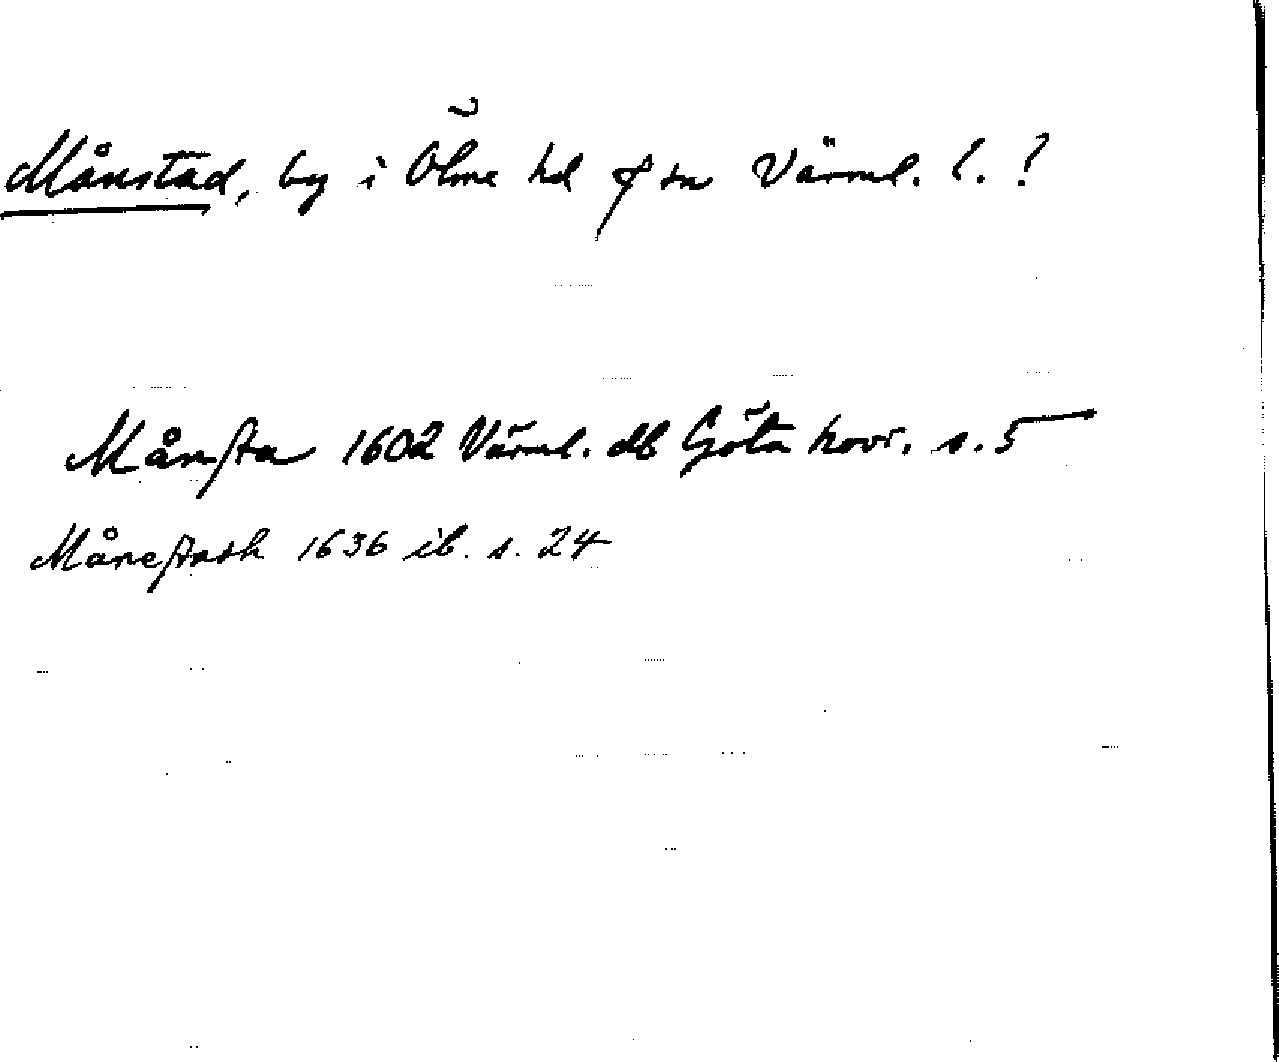 Månstad, by i Ölme hd o sn Värml. l. ?
Månsta 1602 Värml. db Göta hovr. s. 5
Månestadh 1636 ib. s. 24